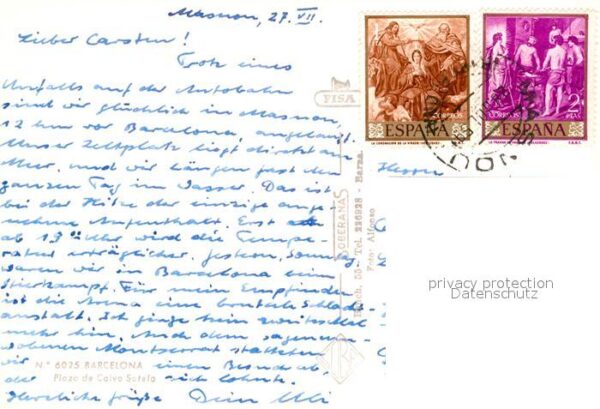 Masnou, 27. VII.
Lieber Carsten!
Trotz eines
Unfalls auf der Autobahn
sind wir glücklich in Masnou,
12 km vor Barcelona, angelangt.
Unser Zeltplatz liegt direkt am
Meer, und wir hängen fast den
ganzen Tag im Wasser. Das ist
bei der Hitze der einzige ange-
nehme Aufenthalt. Erst
ab 19 Uhr wird die Tempe-
ratur erträglicher. Gestern, Sonntag
waren wir in Barcelona beim
Stierkampf. Für mein Empfinden
ist die Arena eine brutale Schlacht-
anstalt. Ich ginge kein zweites Mal
mehr hin. Auch dem sagenum-
wobenen Montserrat statteten
wir einen Besuch ab,
der sich lohnte.
Herzliche Grüße Dein Uli
N.° 6025 BARCELONA
Plaza de Calvo Sotelo
FISA
SOBERANAS
55 - Tel. 226928 - Barna.
Foto: Alfonso
CORREOS
ESPAÑA
LA CORONACION DE LA VIRGEN
CORREOS
2 PTAS
ESPAÑA
LA FRAGUA DE
F.N.M.T.
Hessen
privacy protection
Datenschutz